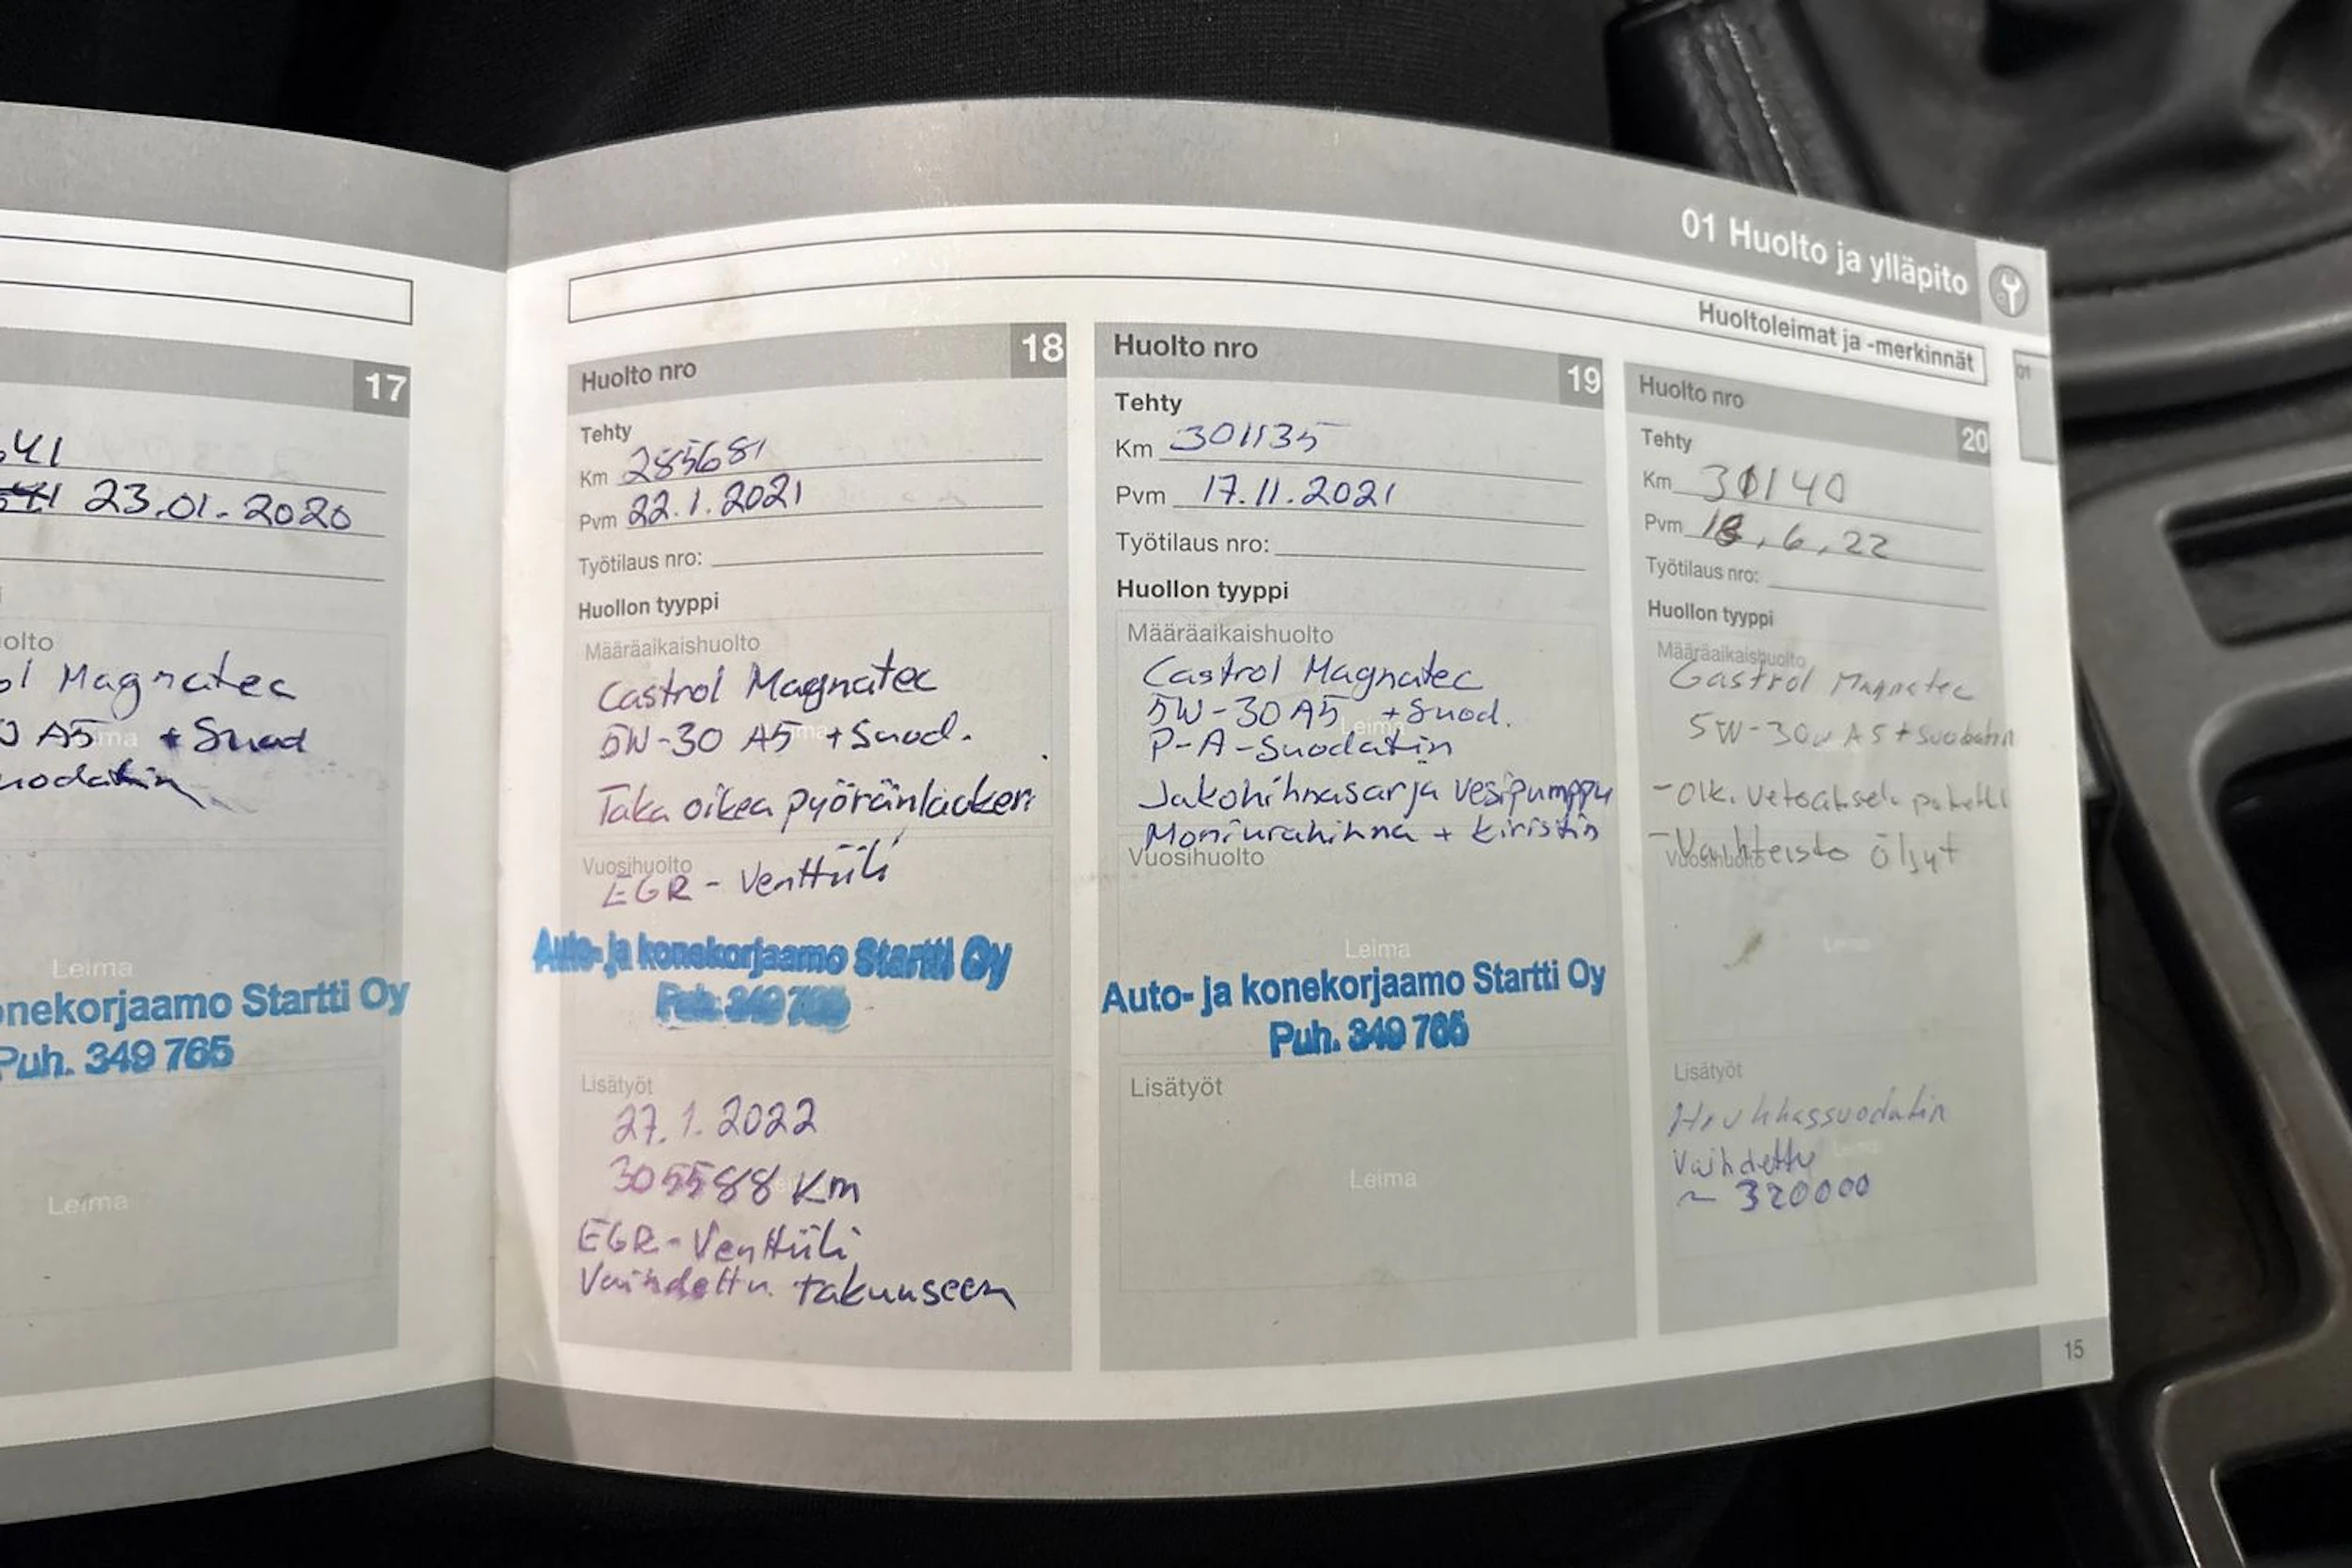 01 Huolto ja ylläpito
Huoltoleimat ja -merkinnät
01
17
41
23.01.2020
olto
Magnatec
A5 + Suod
Leima
nekorjaamo Startti Oy
Puh. 349 765
Leima
Huolto nro 18
Tehty
Km 285681
Pvm 22.1.2021
Työtilaus nro:
Huollon tyyppi
Määräaikaishuolto
Castrol Magnatec
5W-30 A5 + Suod.
Taka oikea pyöränlaakeri
Vuosihuolto
EGR - Venttiili
Auto- ja konekorjaamo Startti Oy
Puh. 349 765
Lisätyöt
27.1.2022
305588 Km
EGR - Venttiili
Vaihdettu takuuseen
Huolto nro 19
Tehty
Km 301135
Pvm 17.11.2021
Työtilaus nro:
Huollon tyyppi
Määräaikaishuolto
Castrol Magnatec
5W-30 A5 + Suod.
Leima
P-A-Suodatin
Jakohihnasarja Vesipumppu
Moniurahihna + kiristin
Vuosihuolto
Leima
Auto- ja konekorjaamo Startti Oy
Puh. 349 765
Lisätyöt
Leima
Huolto nro 20
Tehty
Km
Pvm 6, 22
Työtilaus nro:
Huollon tyyppi
Määräaikaishuolto
Castrol Magnatec
5W-30 A5 + suodatin
- oik. vetoakseli
- Vaihteisto öljyt
Vuosihuolto
Leima
Lisätyöt
Hiukkassuodatin
Vaihdettu
Leima
~ 320000
15